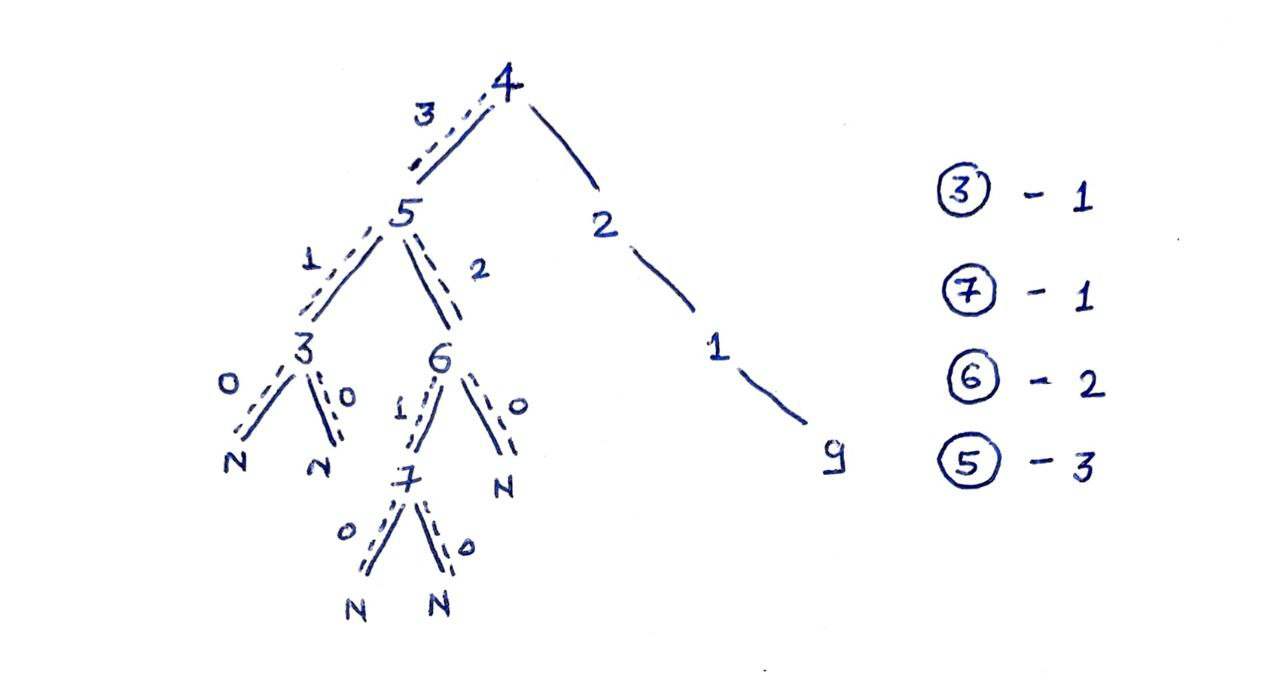 4
3
5 2
1 2
3 6 1
0 0 1 0
N N 7 N 9
0 0
N N
③ - 1
⑦ - 1
⑥ - 2
⑤ - 3